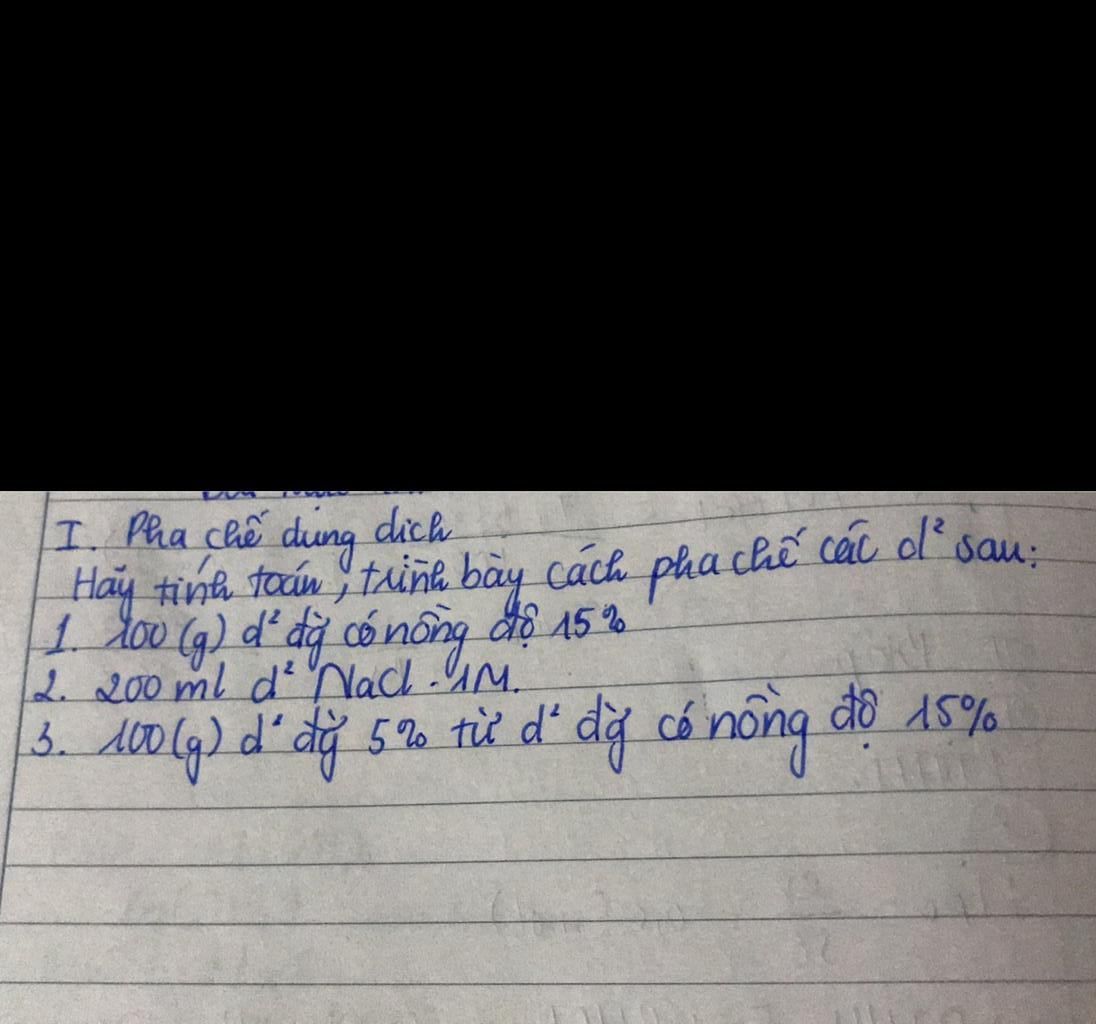 I. Pha chế dung dich
Hãy tính toán, trình bày cách pha chế các d² sau:
1. 100 (g) d² đg̀ có nồng độ 15%
2. 200 ml d² NaCl. 1M.
3. 100 (g) d² đg̀ 5% từ d² đg̀ có nồng độ 15%